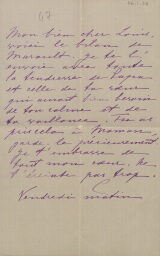 67
Mon bien cher Louis,
voici le bilan de
Marault. Je te l'
envoie avec toute
la tendresse de Papa
et celle de ta sœur
qui aurait bien besoin
de ton calme et de
ta vaillance. Tu as
à Maman
garde le précieusement
Je t'embrasse de
tout mon cœur. Ne
t'éreinte pas trop.
Vendredi matin